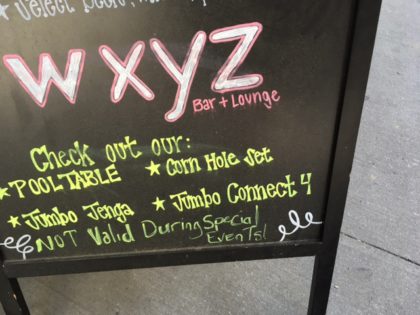 wxyz
Bar + Lounge
Check out our:
★ POOL TABLE ★ Corn Hole Set
★ Jumbo Jenga ★ Jumbo Connect 4
NOT Valid During Special
Events!